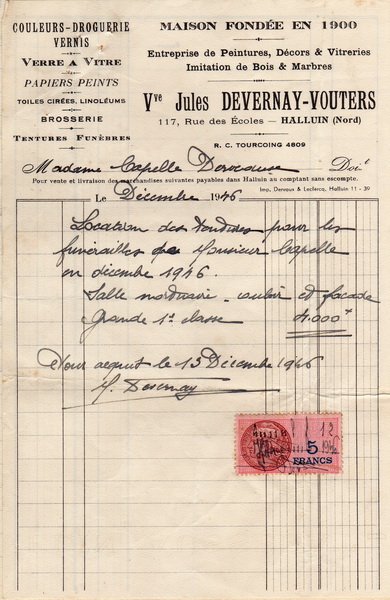 COULEURS-DROGUERIE
VERNIS
VERRE A VITRE
PAPIERS PEINTS
TOILES CIRÉES, LINOLÉUMS
BROSSERIE
TENTURES FUNÈBRES
MAISON FONDÉE EN 1900
Entreprise de Peintures, Décors & Vitreries
Imitation de Bois & Marbres
Vve Jules DEVERNAY-VOUTERS
117, Rue des Écoles — HALLUIN (Nord)
R. C. TOURCOING 4809
Madame Capelle Doit
Pour vente et livraison des marchandises suivantes payables dans Halluin au comptant sans escompte.
Imp. Demoux & Leclercq, Halluin 11 - 39
Le Décembre 1946
Location des Tentures pour les
funérailles de Monsieur Capelle
en décembre 1946.
Salle mortuaire - couloir et façade
Grande 1e classe 4.000 f
Pour acquit le 13 Décembre 1946
Devernay
12
5
FRANCS